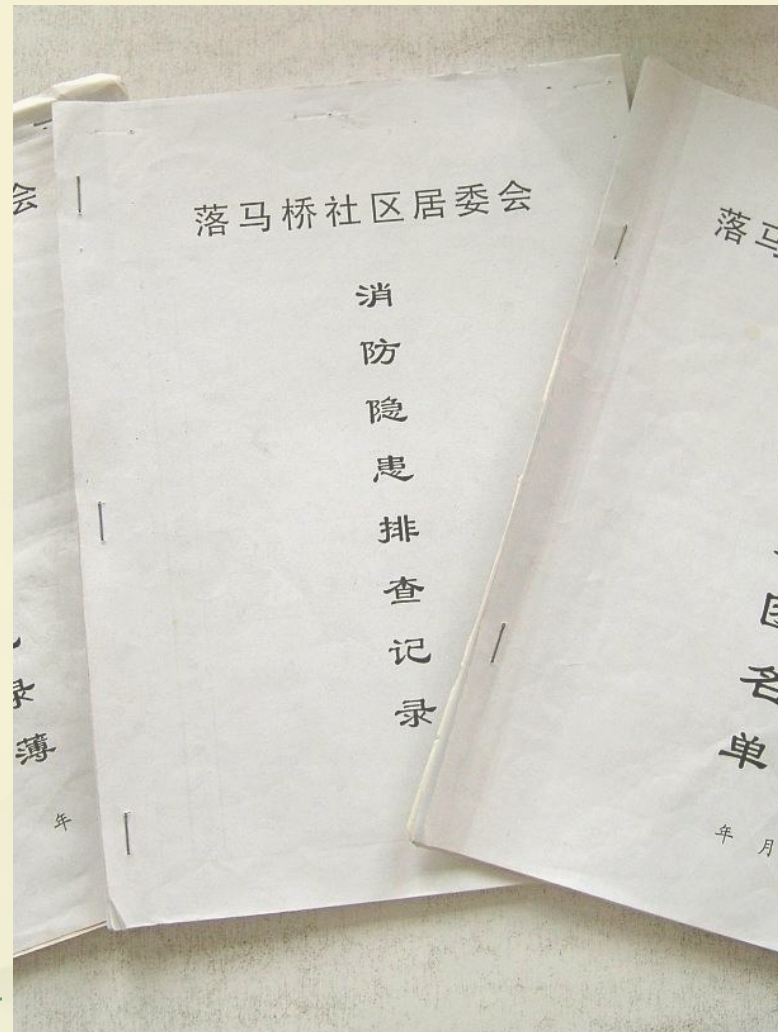 会
录
薄
年
落马桥社区居委会
消防隐患排查记录
落马
名
单
年 月